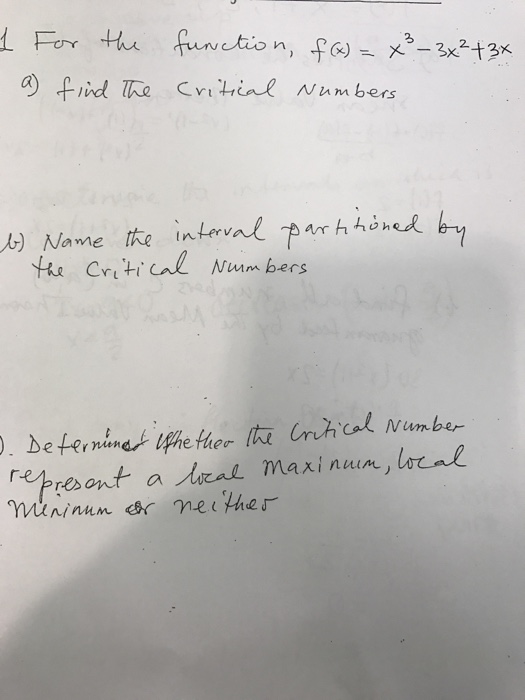 1 For the function, f(x) = x³ - 3x² + 3x
a) find The Critical Numbers
b) Name the interval partitioned by
the Critical Numbers
). Determined Whether the Critical Number
represent a local maximum, local
mininum or neither